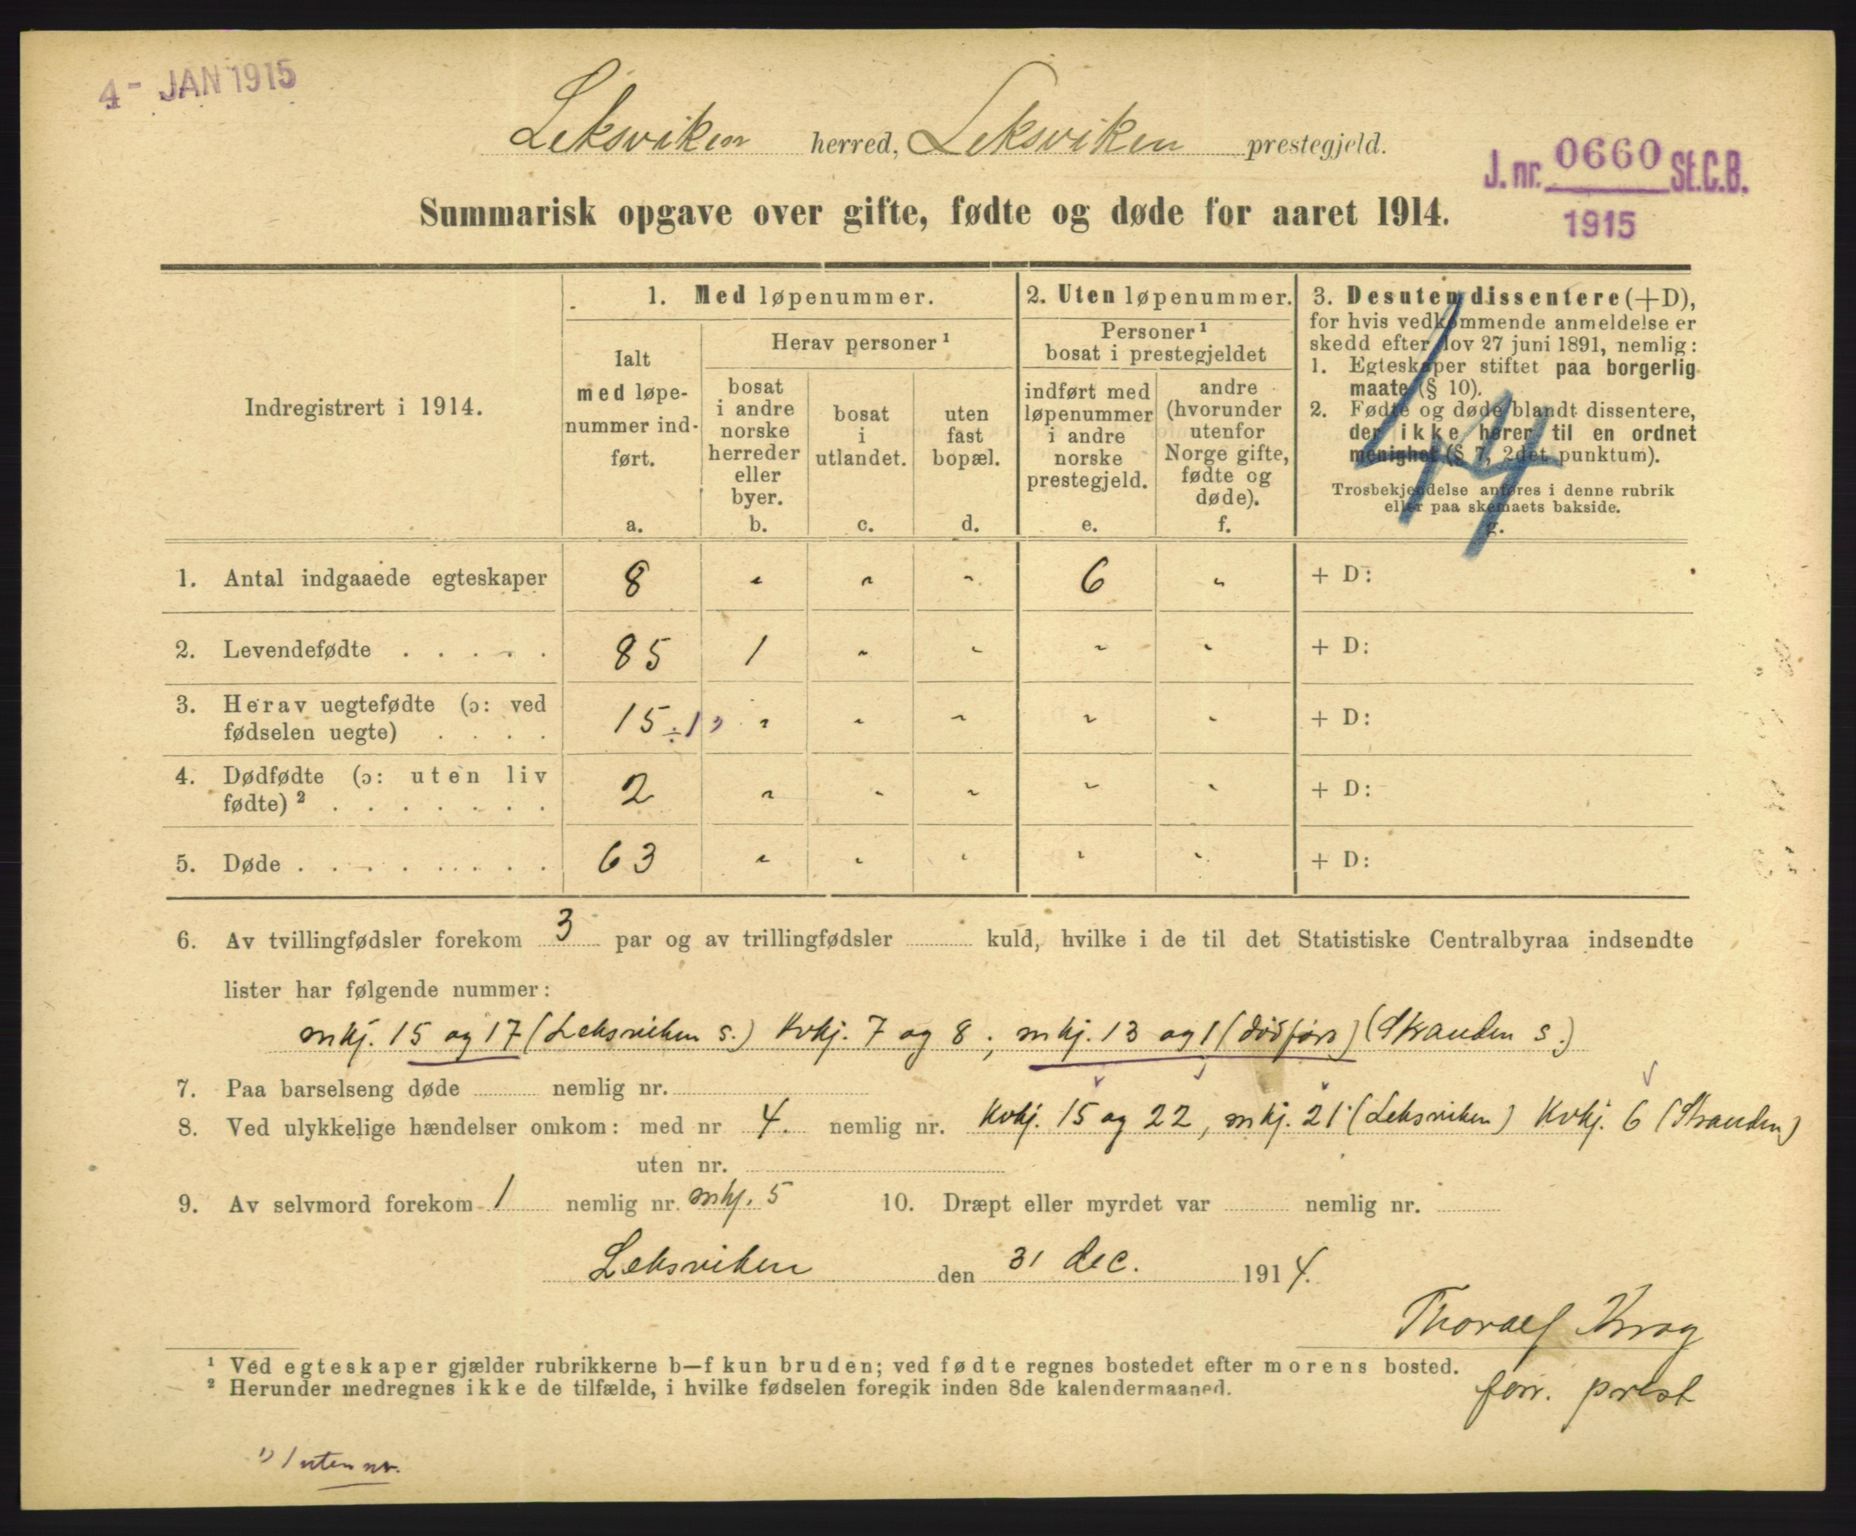 4 - JAN 1915
Leksviken herred, Leksviken prestegjeld.
J. nr. 0660 St.C.B.
1915
Summarisk opgave over gifte, fødte og døde for aaret 1914.
Indregistrert i 1914.
1. Med løpenummer.
Ialt
med løpe-
nummer ind-
ført.
a.
Herav personer ¹
bosat
i andre
norske
herreder
eller
byer.
b.
bosat
i
utlandet.
c.
uten
fast
bopæl.
d.
2. Uten løpenummer.
Personer ¹
bosat i prestegjeldet
indført med
løpenummer
i andre
norske
prestegjeld.
e.
andre
(hvorunder
utenfor
Norge gifte,
fødte og
døde).
f.
3. Desuten dissentere (+D),
for hvis vedkommende anmeldelse er
skedd efter lov 27 juni 1891, nemlig:
1. Egteskaper stiftet paa borgerlig
maate (§ 10).
2. Fødte og døde blandt dissentere,
der ikke hører til en ordnet
menighet (§ 7, 2det punktum).
Trosbekjendelse anføres i denne rubrik
eller paa skemaets bakside.
g.
1. Antal indgaaede egteskaper 8 " " " 6 " + D:
2. Levendefødte . . . . . 85 1 " " " " + D:
3. Herav uegtefødte (ɔ: ved
fødselen uegte) . . . . 15 ÷ 1 ¹⁾ " " " " " + D:
4. Dødfødte (ɔ: uten liv
fødte) ² . . . . . . . 2 " " " " " + D:
5. Døde . . . . . . . . 63 " " " " " + D:
6. Av tvillingfødsler forekom 3 par og av trillingfødsler kuld, hvilke i de til det Statistiske Centralbyraa indsendte
lister har følgende nummer:
mkj. 15 og 17 (Leksviken s.) Kvkj. 7 og 8 ; mkj. 13 og 1 (dødførs) (Stranden s.)
7. Paa barselseng døde nemlig nr.
8. Ved ulykkelige hændelser omkom: med nr 4. nemlig nr. Kvkj. 15 og 22, mkj. 21 (Leksviken) Kvkj. 6 (Stranden)
uten nr.
9. Av selvmord forekom 1 nemlig nr. mkj. 5 10. Dræpt eller myrdet var nemlig nr.
Leksviken den 31 dec. 1914.
Thoralf Krog
forr. prest
¹ Ved egteskaper gjælder rubrikkerne b—f kun bruden; ved fødte regnes bostedet efter morens bosted.
² Herunder medregnes ikke de tilfælde, i hvilke fødselen foregik inden 8de kalendermaaned.
¹⁾ 1 uten nr.